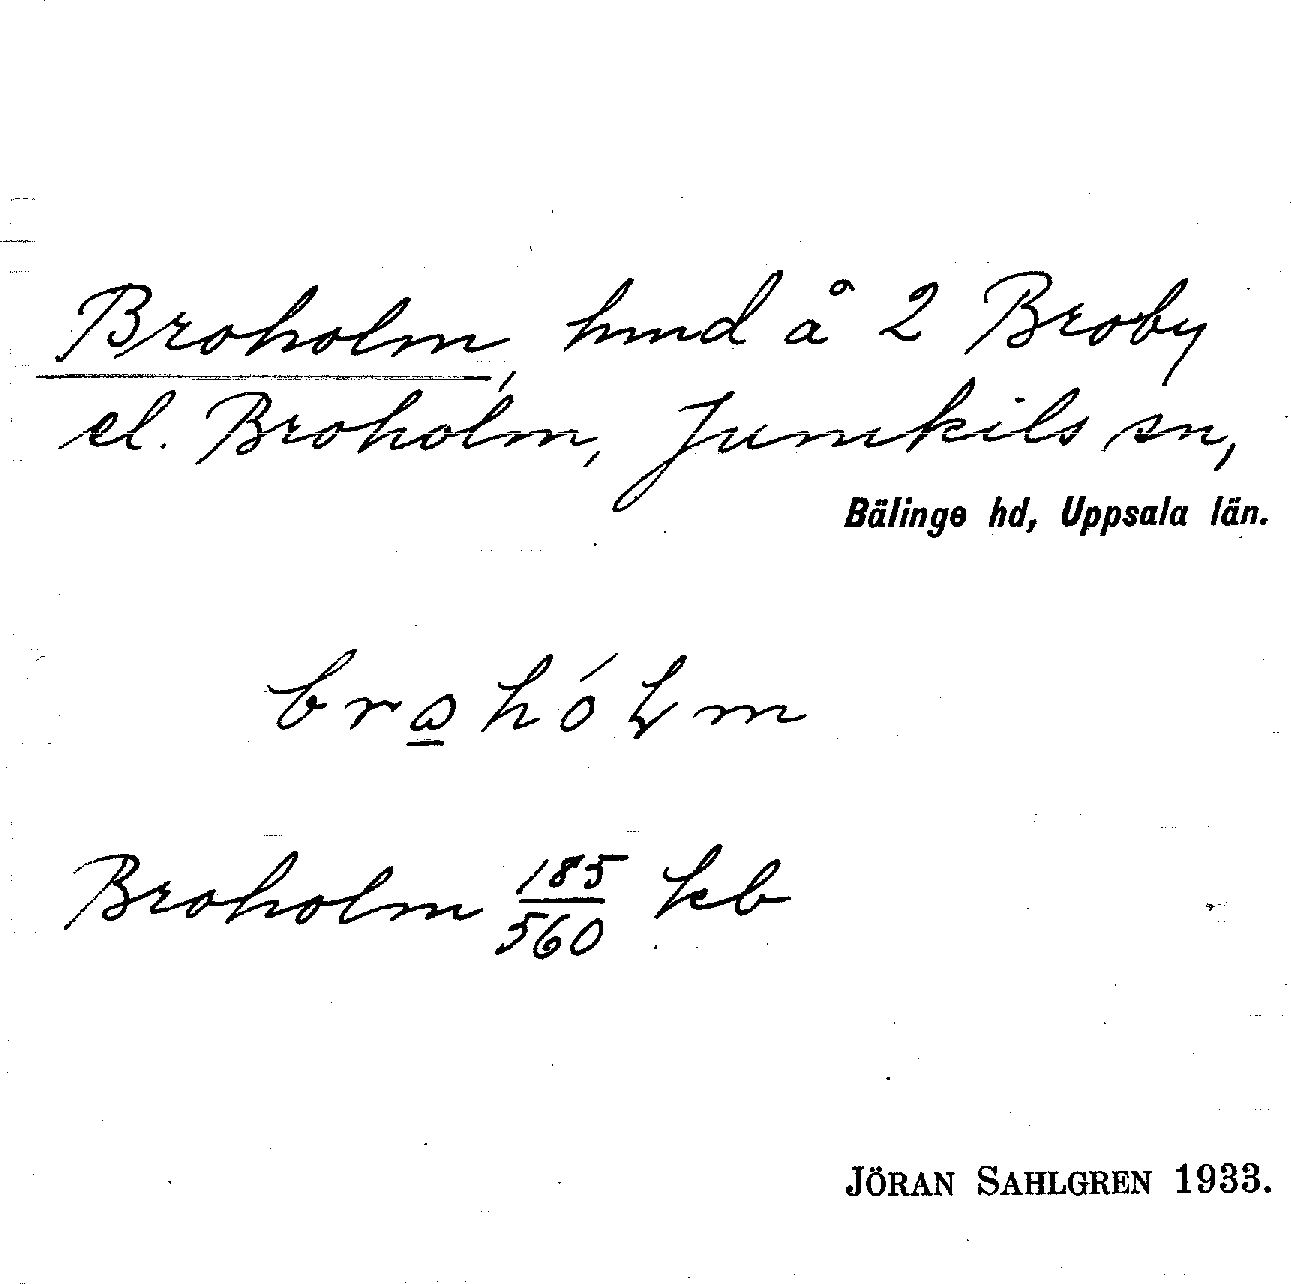 Broholm, hmd å 2 Broby
el. Broholm, Jumkils sn,
Bälinge hd, Uppsala län.
Broholm 185/560 kb
JÖRAN SAHLGREN 1933.